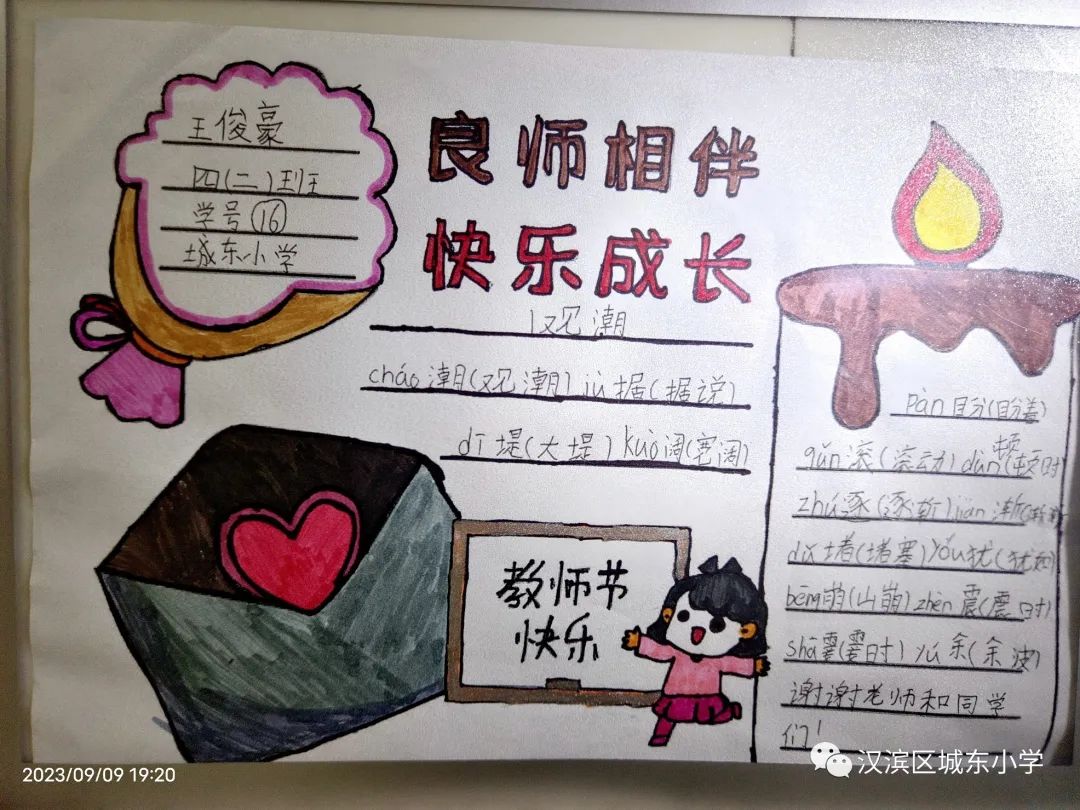 王俊豪
四(二)班
学号⑯
城东小学
良师相伴
快乐成长
观潮
cháo 潮(观潮) jù 据(据说)
dī 堤(大堤) kuò 阔(宽阔)
教师节
快乐
pàn 盼(盼着)
gǔn 滚(滚动) dùn 顿(顿时
zhú 逐(逐渐) jiàn 渐(渐渐
dǔ 堵(堵塞) yóu 犹(犹如)
bēng 崩(山崩) zhèn 震(震时)
shà 霎(霎时) yú 余(余波)
谢谢老师和同学
们!
汉滨区城东小学
2023/09/09 19:20